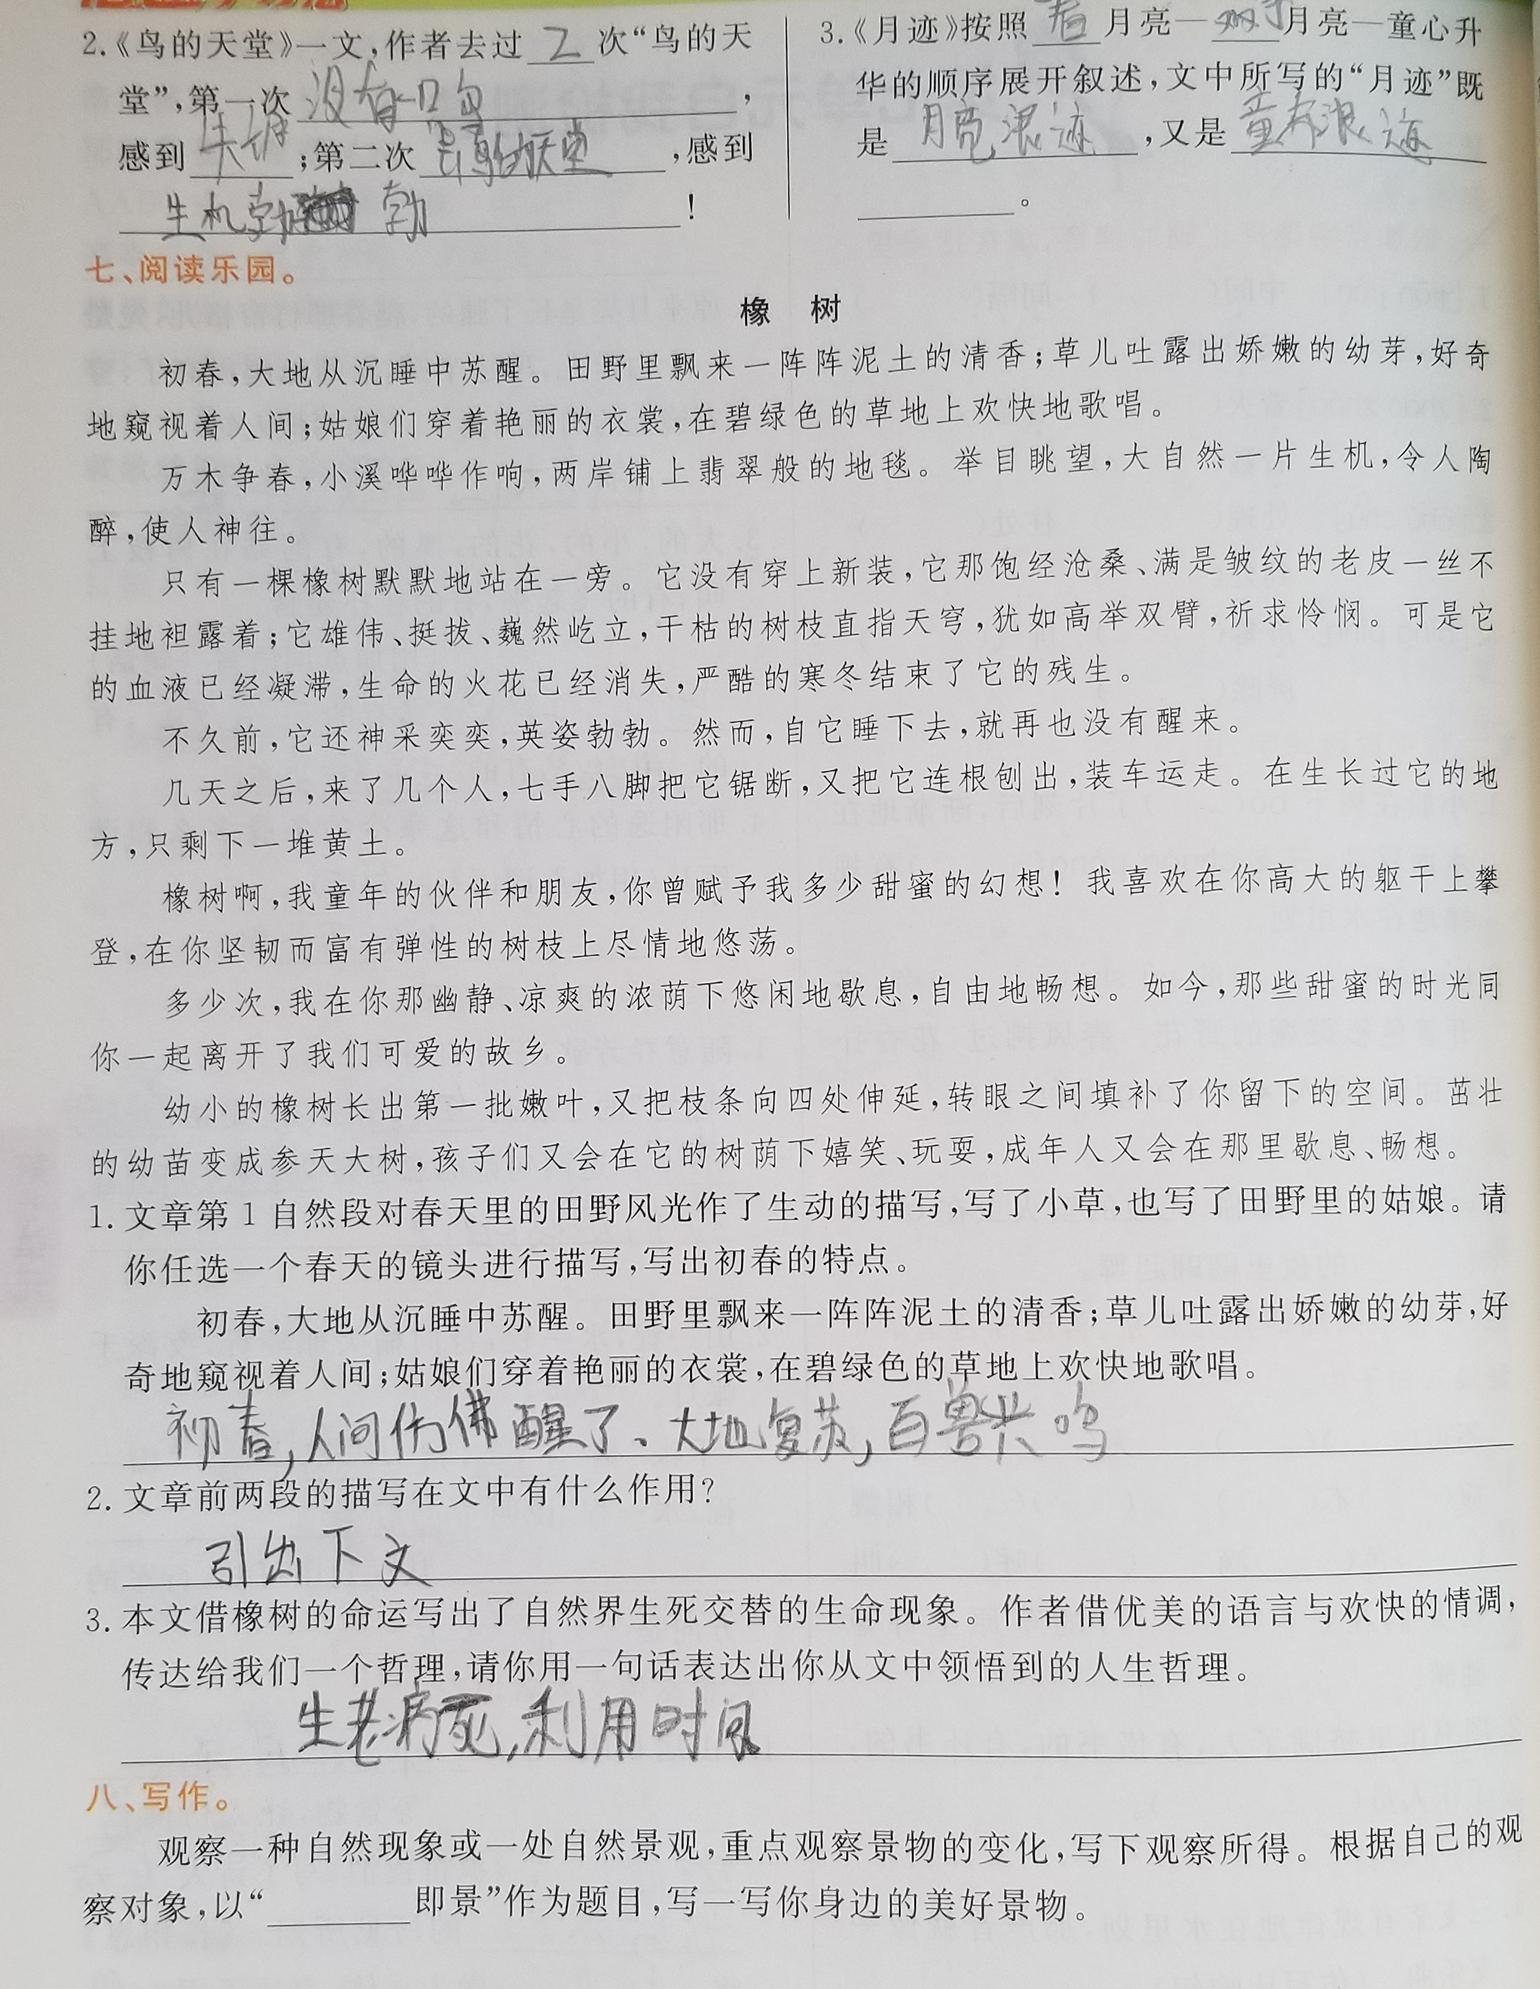 2.《鸟的天堂》一文,作者去过 2 次“鸟的天
堂”,第一次 没有一只鸟,
感到 失望;第二次 是鸟的天堂,感到
生机勃 勃!
3.《月迹》按照 看 月亮— 月亮—童心升
华的顺序展开叙述,文中所写的“月迹”既
是 月亮浪迹,又是 童 浪迹
。
七、阅读乐园。
橡 树
初春,大地从沉睡中苏醒。田野里飘来一阵阵泥土的清香;草儿吐露出娇嫩的幼芽,好奇
地窥视着人间;姑娘们穿着艳丽的衣裳,在碧绿色的草地上欢快地歌唱。
万木争春,小溪哗哗作响,两岸铺上翡翠般的地毯。举目眺望,大自然一片生机,令人陶
醉,使人神往。
只有一棵橡树默默地站在一旁。它没有穿上新装,它那饱经沧桑、满是皱纹的老皮一丝不
挂地袒露着;它雄伟、挺拔、巍然屹立,干枯的树枝直指天穹,犹如高举双臂,祈求怜悯。可是它
的血液已经凝滞,生命的火花已经消失,严酷的寒冬结束了它的残生。
不久前,它还神采奕奕,英姿勃勃。然而,自它睡下去,就再也没有醒来。
几天之后,来了几个人,七手八脚把它锯断,又把它连根刨出,装车运走。在生长过它的地
方,只剩下一堆黄土。
橡树啊,我童年的伙伴和朋友,你曾赋予我多少甜蜜的幻想!我喜欢在你高大的躯干上攀
登,在你坚韧而富有弹性的树枝上尽情地悠荡。
多少次,我在你那幽静、凉爽的浓荫下悠闲地歇息,自由地畅想。如今,那些甜蜜的时光同
你一起离开了我们可爱的故乡。
幼小的橡树长出第一批嫩叶,又把枝条向四处伸延,转眼之间填补了你留下的空间。茁壮
的幼苗变成参天大树,孩子们又会在它的树荫下嬉笑、玩耍,成年人又会在那里歇息、畅想。
1. 文章第1自然段对春天里的田野风光作了生动的描写,写了小草,也写了田野里的姑娘。请
你任选一个春天的镜头进行描写,写出初春的特点。
初春,大地从沉睡中苏醒。田野里飘来一阵阵泥土的清香;草儿吐露出娇嫩的幼芽,好
奇地窥视着人间;姑娘们穿着艳丽的衣裳,在碧绿色的草地上欢快地歌唱。
初春,人间仿佛醒了。大地复苏,百兽兴鸣
2. 文章前两段的描写在文中有什么作用?
引出下文
3. 本文借橡树的命运写出了自然界生死交替的生命现象。作者借优美的语言与欢快的情调,
传达给我们一个哲理,请你用一句话表达出你从文中领悟到的人生哲理。
生老病死,利用时间
八、写作。
观察一种自然现象或一处自然景观,重点观察景物的变化,写下观察所得。根据自己的观
察对象,以“________即景”作为题目,写一写你身边的美好景物。